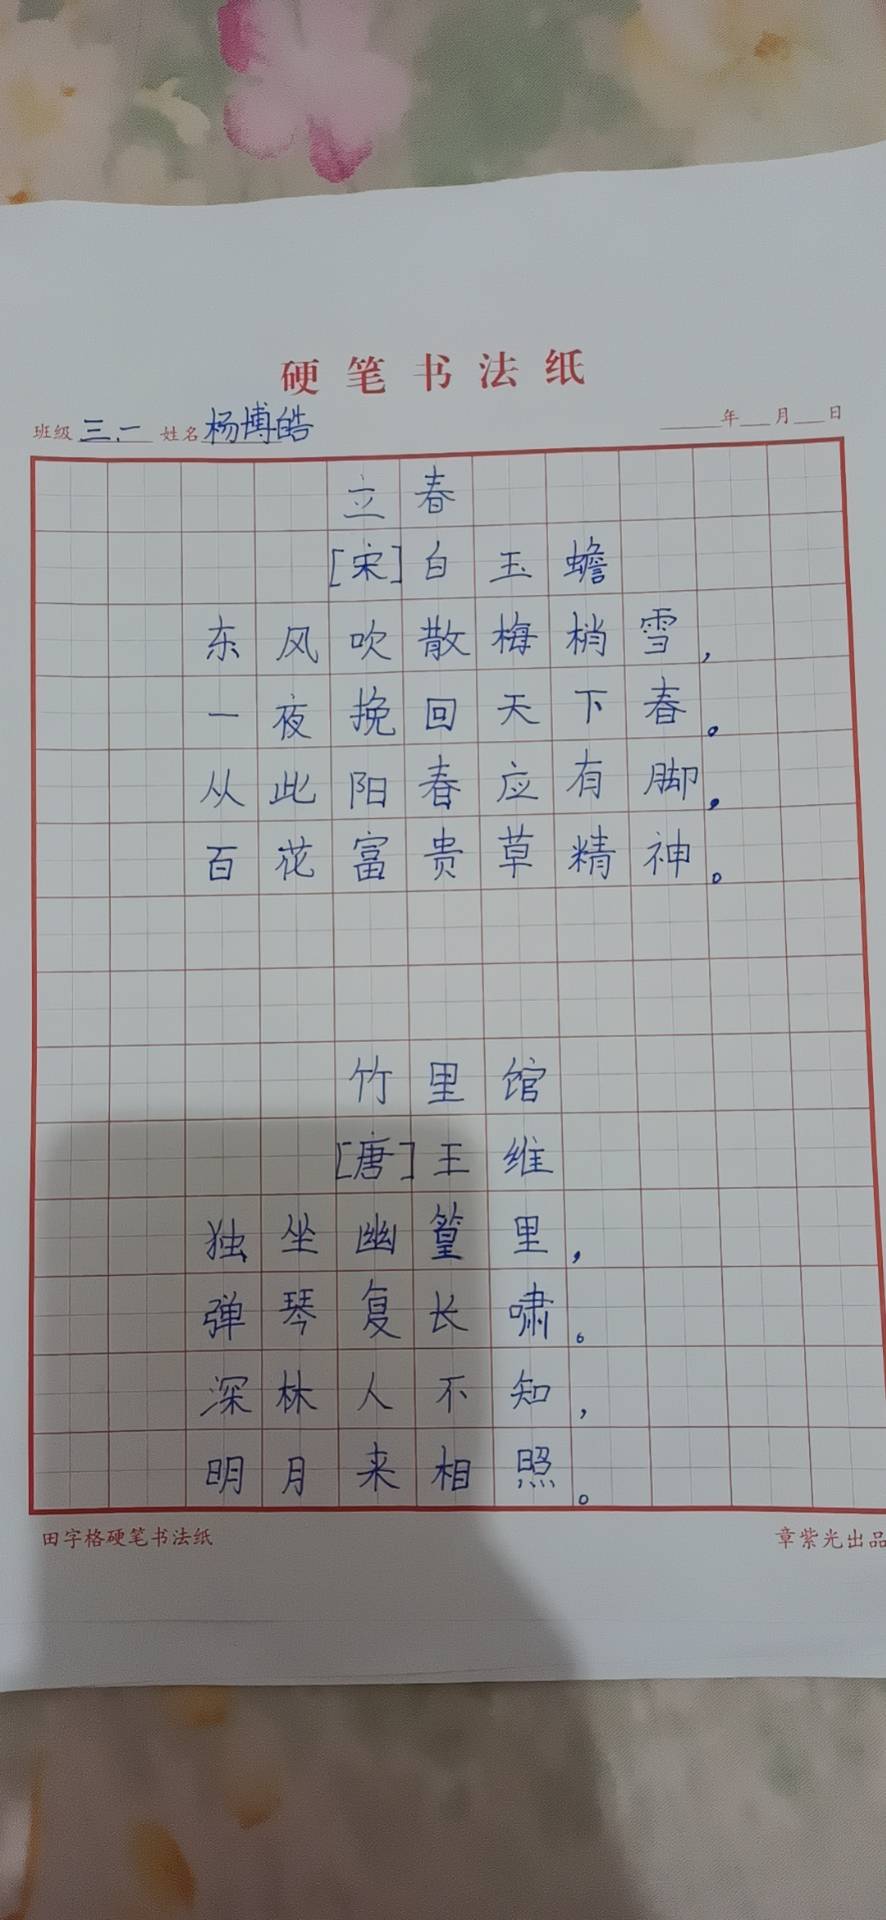 硬笔书法纸
班级 三.一 姓名 杨博皓 年 月 日
立春
[宋]白玉蟾
东风吹散梅梢雪,
一夜挽回天下春。
从此阳春应有脚,
百花富贵草精神。
竹里馆
[唐]王维
独坐幽篁里,
弹琴复长啸。
深林人不知,
明月来相照。
田字格硬笔书法纸 章紫光出品